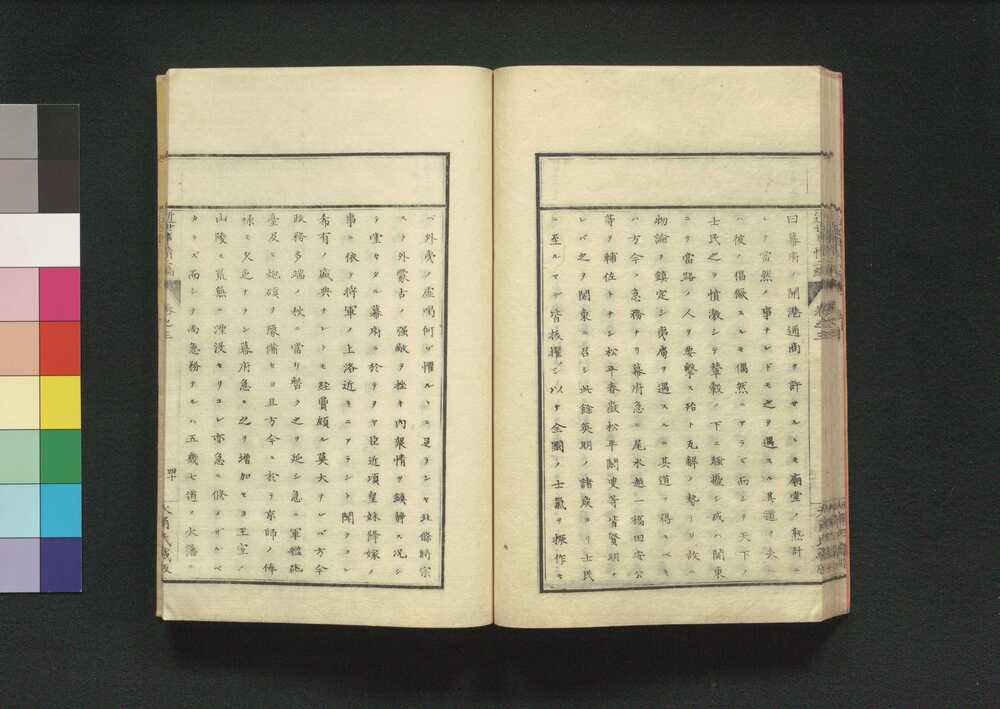 曰幕府ノ開港通商ヲ許セルヤ廟堂ノ熟計ニ
シテ當然ノ事ナレドモ之ヲ遇スル其道ヲ失ヘ
ハ彼ノ倡獗スルモ偶然ニアラズ而シテ天下ノ
士民之ヲ憤激シテ輦轂ノ下ニ騷擾シ或ハ関東
ニテ當路ノ人ヲ要擊ス殆ト瓦解ノ勢アリ故ニ
物論ヲ鎮定シ夷虜ヲ遇スルニ其道ヲ得ルベ
ハ方今ノ急務ナリ幕府急ニ尾水越一橋田安公
等ヲ輔位トナシ松平春嶽松平閑叟等皆賢明ノ
レバ之ヲ関東ニ召シ此餘英明ノ諸侯ヨリ士民
ニ至ルマデ皆抜擢シ以テ全國ノ士氣ヲ振作セ
バ外夷ノ虚喝何ゾ懼ルヽニ足ランヤ北條時宗
スラ外蒙古ノ强敵ヲ挫キ内衆情ヲ鎮靜ス况シ
テ堂々タル幕府ニ於テヲヤ臣近頃皇妹降嫁ノ
事ニ依テ將軍ノ上洛近キニアラント聞クコレ
希有ノ盛典ナレトモ經費頗ル莫大ナレバ方今
政務多端ノ秋ニ當リ暫ク之ヲ延シ急ニ軍艦砲
臺及ヒ炮磺ヲ豫備セヨ且方今ニ於テ京師ノ俸
祿モ欠乏ナラン幕府急ニ之ヲ増加セヨ王室ノ
山陵モ荒蕪ニ湮没セリコレ亦急ニ修メザルベ
カラズ而シテ尚急務ナルハ五畿七道ノ大藩ニ
近世事情二編 巻之三 四十
大角氏蔵版